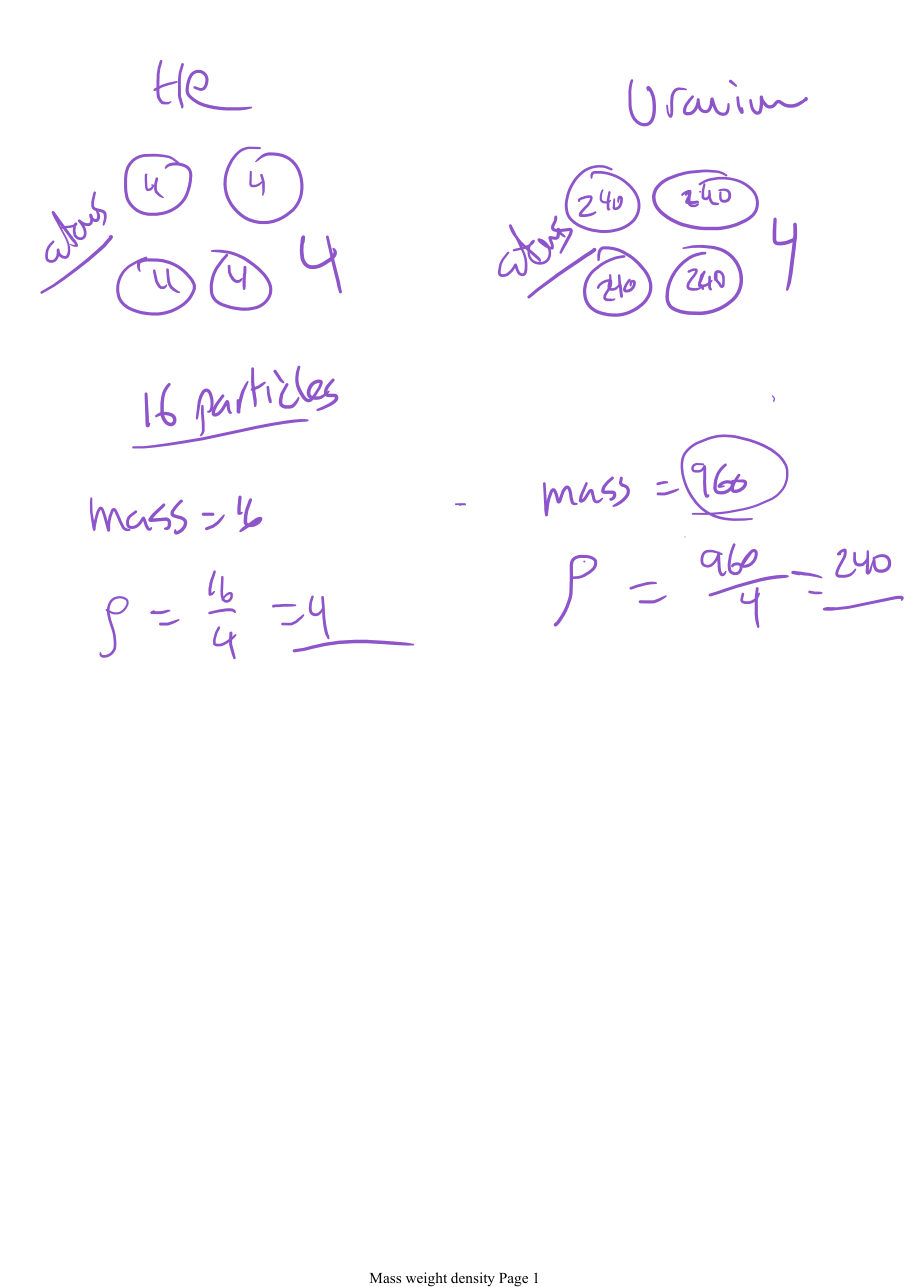 He
4 4
atoms
4 4 4
16 particles
mass = 16
ρ = 16/4 = 4
Uranium
240 240
atoms 4
240 240
mass = 960
ρ = 960/4 = 240
Mass weight density Page 1